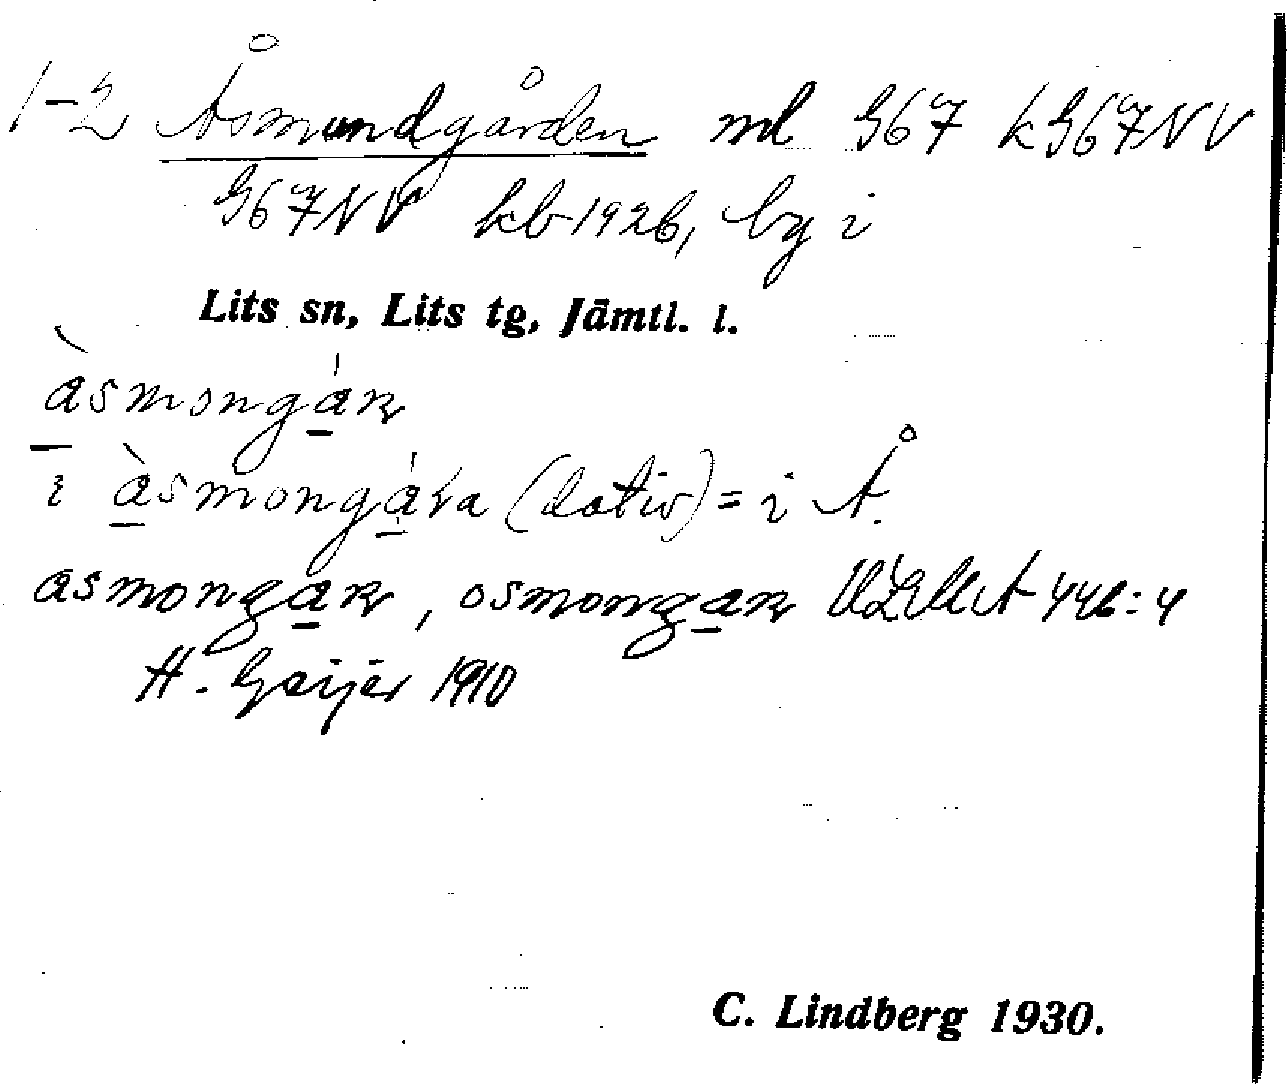 1-2 Åsmundgården ml G67 kG67NV
G67NV kb 1926, by i
Lits sn, Lits tg, Jämtl. l.
àsmonga̱ɳ
i àsmonga̱ɽa (dativ) = i Å.
asmonga̱ɳ, osmonga̱ɳ ULMA 446:4
H. Geijer 1910
C. Lindberg 1930.